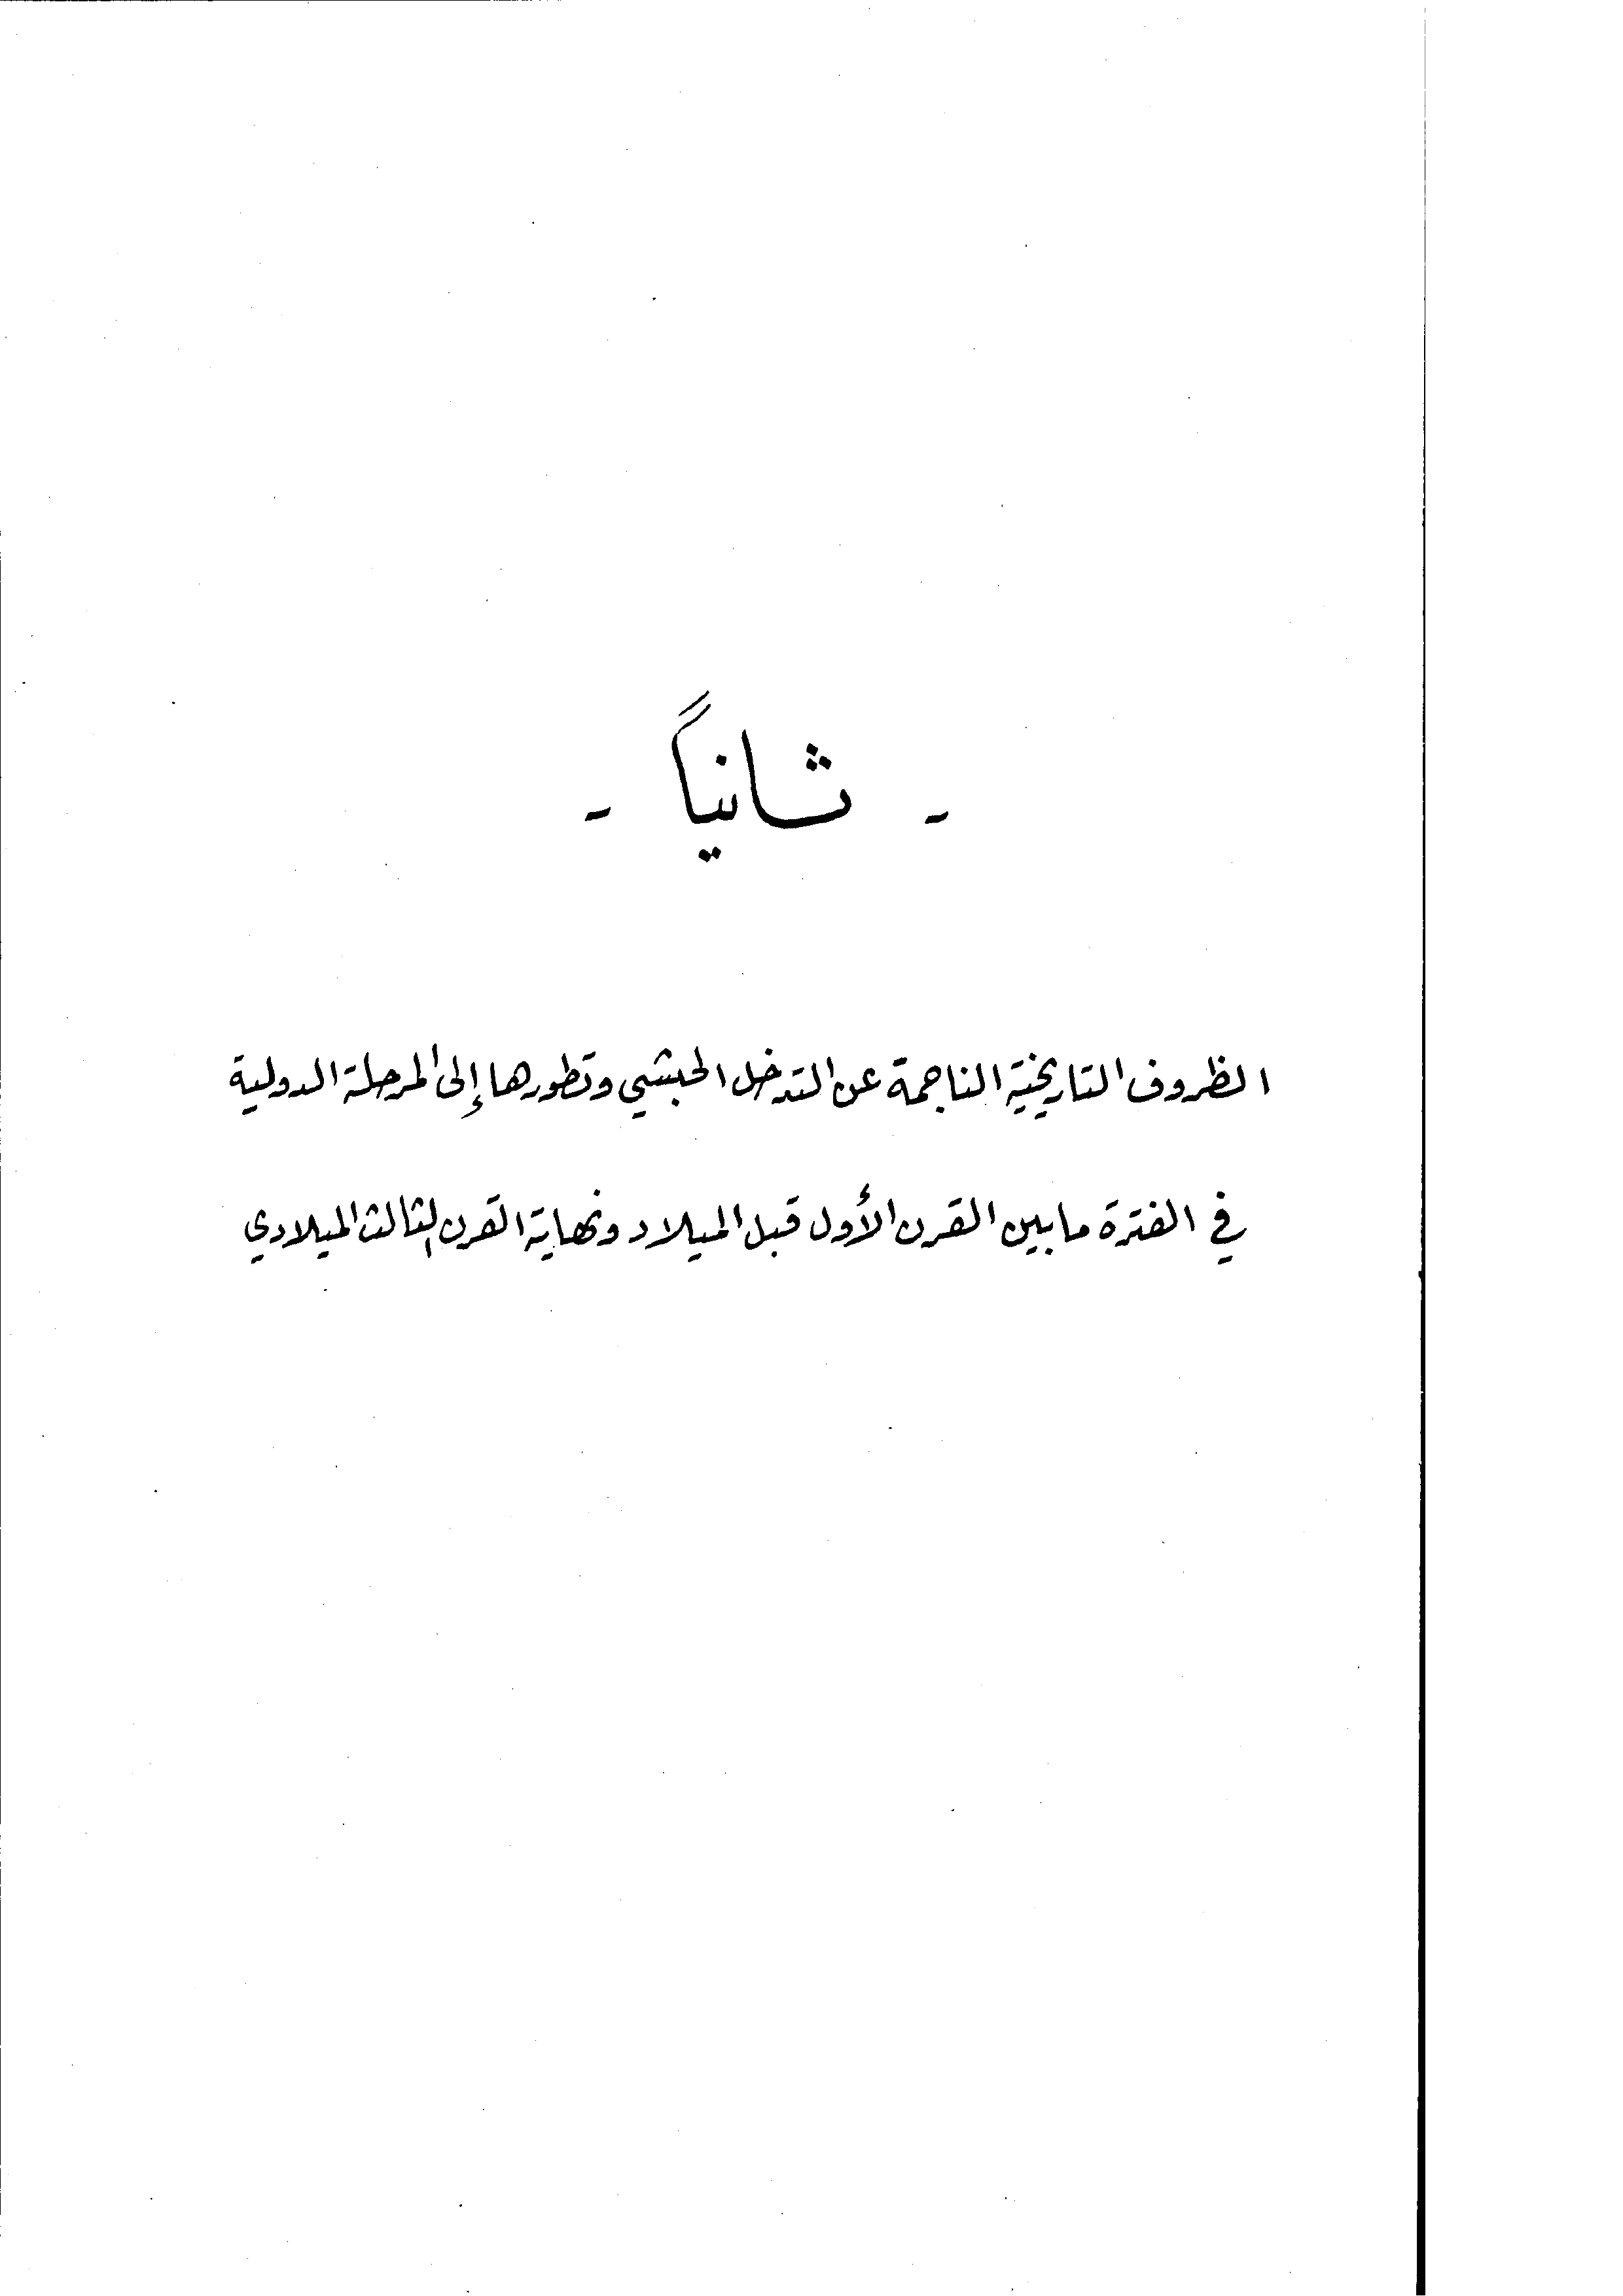 - ثانياً -
الظروف التاريخية الناجمة عن التدخل الحبشي وتطورها إلى المرحلة الدولية
في الفترة ما بين القرن الأول قبل الميلاد ونهاية القرن الثالث الميلادي